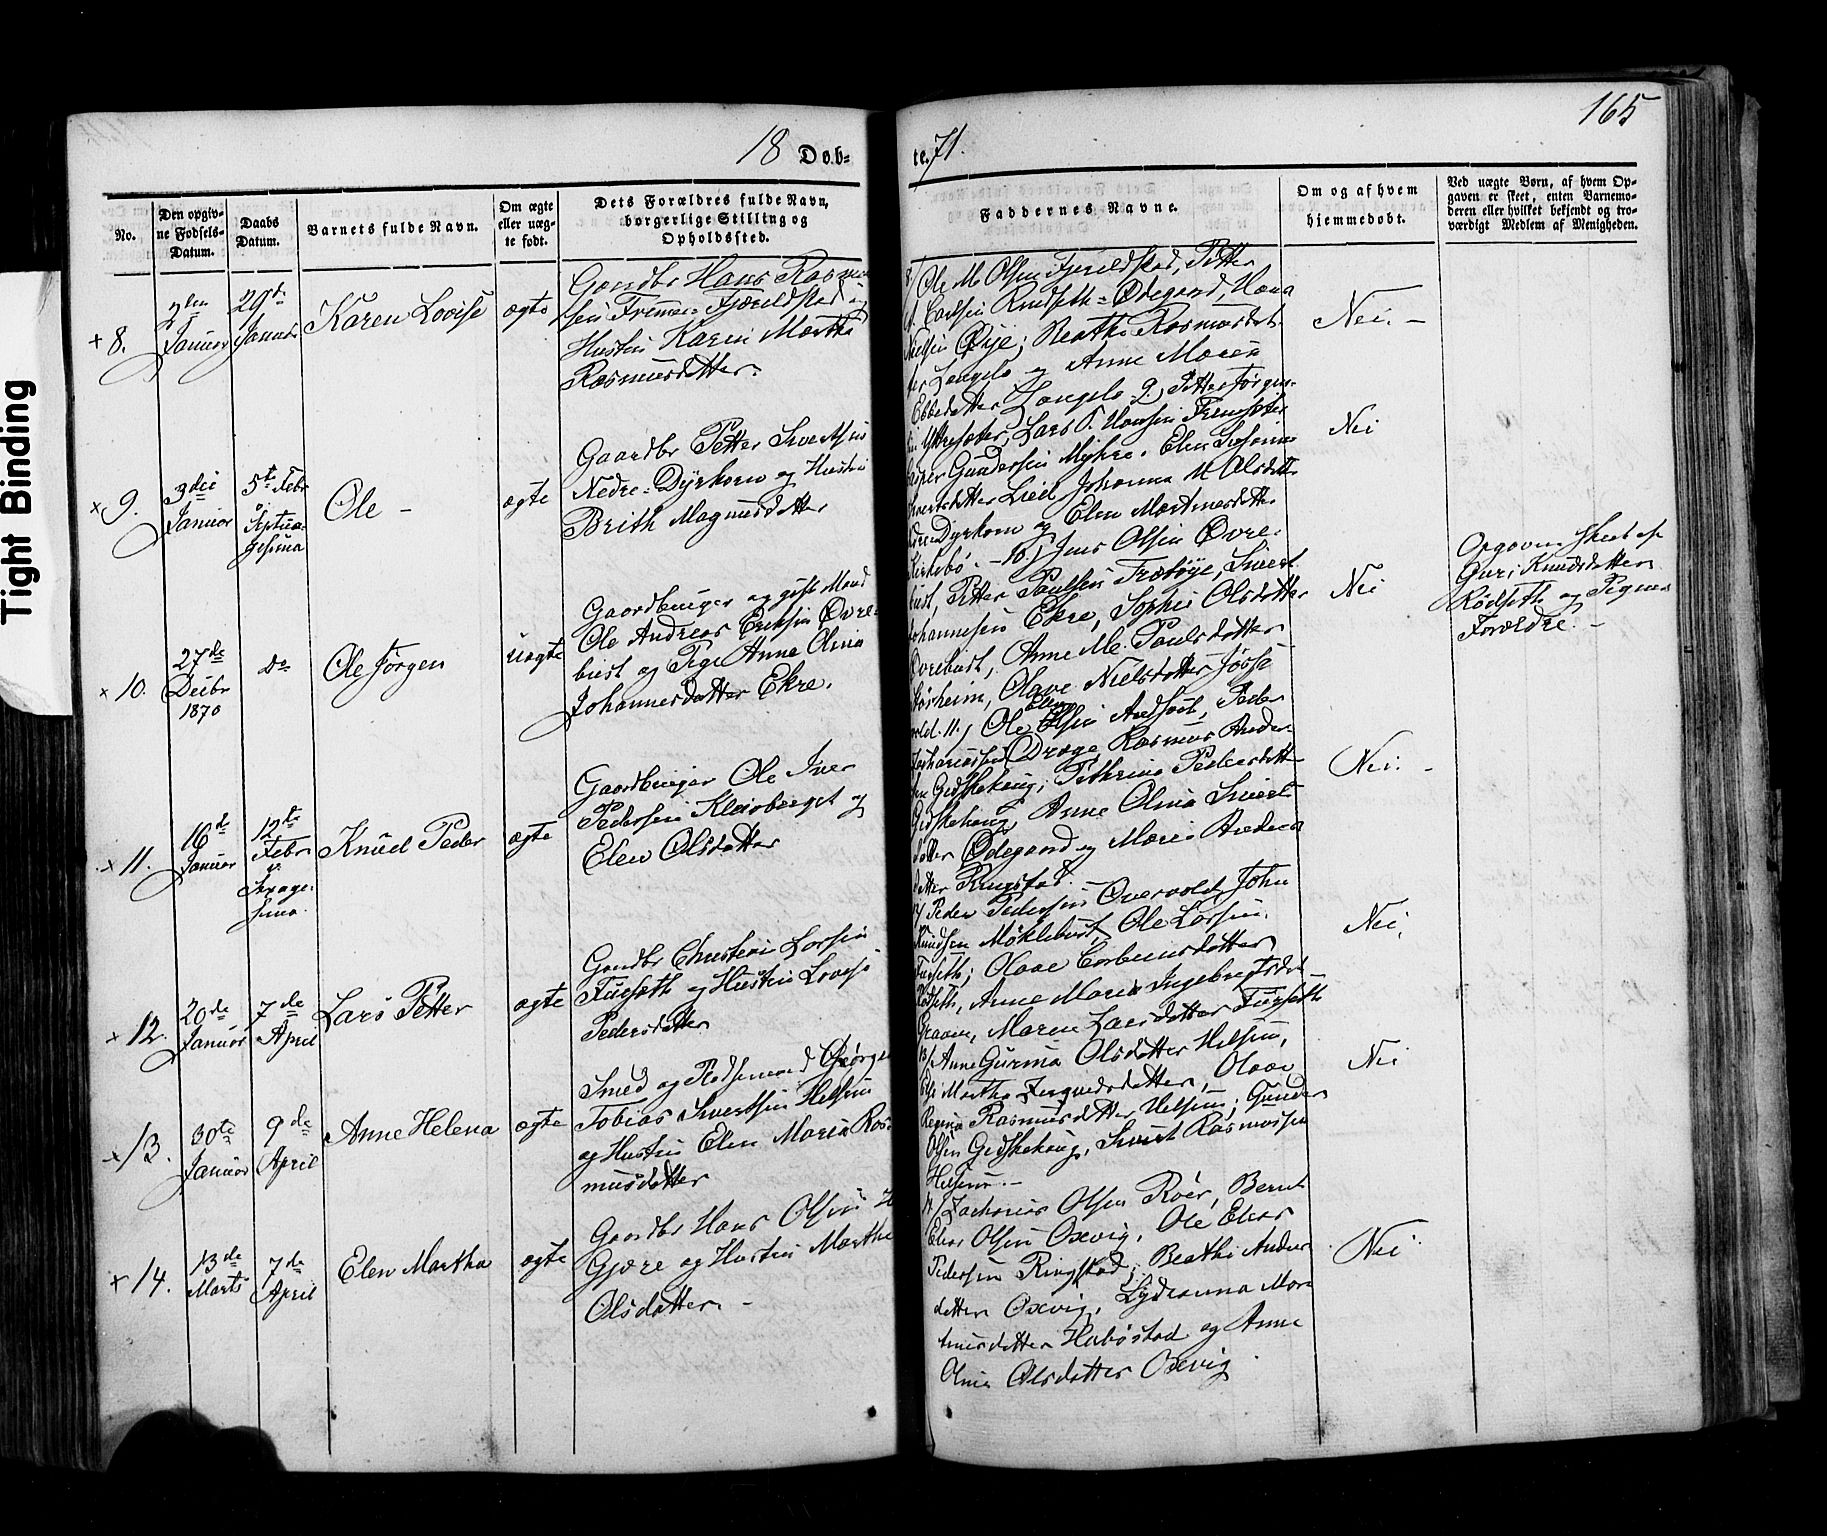 Tight Binding
18 Dob-
te. 71.
165
No.
Den opgiv-
ne Fødsels-
Datum.
Daabs
Datum.
Barnets fulde Navn.
Om ægte
eller uæg-
te født.
Dets Forældres fulde Navn,
borgerlige Stilling og
Opholdssted.
Faddernes Navne.
Om og af hvem
hjemmedøbt.
Ved uægte Børn, af hvem Op-
gaven er skeet, enten Barnemo-
deren eller hvilket bekjendt og tro-
værdigt Medlem af Menigheden.
+ 8.
2den
Januar
29de
Januar
Karen Lovise
ægte
Gaardbr Hans Rasmus
sen Fremre-Fjæreldstad og
Hustru Karen Martha
Rasmusdatter.
8/ Ole M. Olsen Fjæreldstad, Petter
Carlsen Rødseth-Ødegaard, Hans
Nielsen Øye; Beathe Rasmusdat-
ter Langelo og Anne Maren
Ebbedatter Langelo
Nei. -
x 9.
3die
Januar
5te Febr
Septua-
gesima
Ole -
ægte
Gaardbr Petter Sivertsen
Nedre-Dyrkorn og Hustru
Brith Magnusdatter
9, Petter Jørgen-
sen Yttresæter, Lars P. Hansen Fremsæter
Gundersen Myhre. Elen Susanna
Sivertsdatter Lied Johanna M Olsdatt
Dyrkorn og Elen Martinusdatter
Kirkebø. -
Nei
x 10.
27de
Decbr
1870
do
Ole Jørgen
uægte
Gaardbruger og gift Mand
Ole Andreas Eriksen Øvre-
bust og Pige Anne Olina
Johannesdatter Ekre.
10/ Jens Olsen Øvre-
bust, Petter Paulsen Træbøye, Sivert
Johannesen Ekre, Sophie Olsdatter
Ovrebust, Anne M. Paulsdatter
Olave Nielsdatter
Nei
Opgaven skeet af
Guri Knudsdatter
Rødseth og Pigens
Forældre. -
x 11.
16de
Januar
12te
Febr
Sexage-
sima.
Knud Peder
ægte
Gaardbruger Ole Iver
Pedersen Kleivberget og
Elen Olsdatter
11./ Ole Elias Olsen Andfast, Peder
Zachariassen Drage, Rasmus Ander-
sen Gidskehaug; Pethrine Pedersdatt
Gidskehaug, Anne Olina Siverts-
datter Ødegaard og Maren Andreas
datter Ringstad.
Nei. -
x 12.
20de
Januar
7de
April
Lars Petter
ægte
Gaardbr Christen Larsen
Furseth og Hustru Lovise
Pedersdatter
Peder Pedersen Overvold, John
Knudsen Møklebust, Ole Larsen
Furseth; Olave Corbeensdatter
Rødseth, Anne Maria Ingebrigtsdat-
Graven, Maren Larsdatter Furseth
Nei.
x 13.
30te
Januar
9de
April
Anne Helena
ægte
Smed og Pladsmand Georgen
Tobias Sivertsen Helsem
og Hustru Elen Maria Ras-
musdatter
13/ Anne Gurina Olsdatter Helsem,
Martha datter, Olave
Regina Rasmusdatter Helsem; Gunder
Olsen Gidskehaug, Sivert Rasmussen
Helsem. -
Nei
x 14.
13de
Marts
7de
April
Elen Martha
ægte
Gaardbr Hans Olsen
Gjære og Hustru Marthe
Olsdatter. -
14/ Zacharias Olsen Roér, Bernt
Elias Olsen Oxevig, Ole Elias
Pedersen Ringstad; Beathe Anders
datter Oxevig, Lydeanna Mar-
tinusdatter Habostad og Anne
Oline Olsdatter Oxevig.
Nei